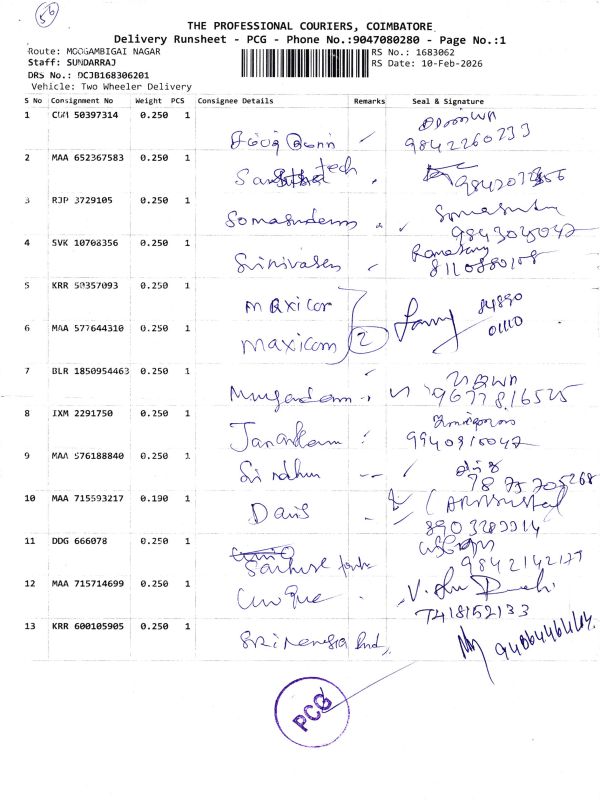 56
THE PROFESSIONAL COURIERS, COIMBATORE
Delivery Runsheet - PCG - Phone No.:9047080280 - Page No.:1
Route: MOOGAMBIGAI NAGAR RS No.: 1683062
Staff: SUNDARRAJ RS Date: 10-Feb-2026
DRS No.: DCJB168306201
Vehicle: Two Wheeler Delivery
S No Consignment No Weight PCS Consignee Details Remarks Seal & Signature
1 CWM 50397314 0.250 1
9842260233
2 MAA 652367583 0.250 1
tech
3 RJP 3729105 0.250 1
Somasundaram
9843025042
4 SVK 10708356 0.250 1
Srinivasen Ramasamy
8110880108
5 KRR 50357093 0.250 1
maxicom 84890
01110
6 MAA 577644310 0.250 1
maxicom 2
7 BLR 1850954463 0.250 1
Murgandam 9677816525
8 IXM 2291750 0.250 1
Janardan 9940910042
9 MAA 576188840 0.250 1
Sri ndhu 78 75 705268
10 MAA 715593217 0.190 1
Davis
8903283914
11 DDG 666078 0.250 1
9842142177
12 MAA 715714699 0.250 1
Unique
7418152133
13 KRR 600105905 0.250 1
Sri Nenesra Ind, 9486446464
PCG